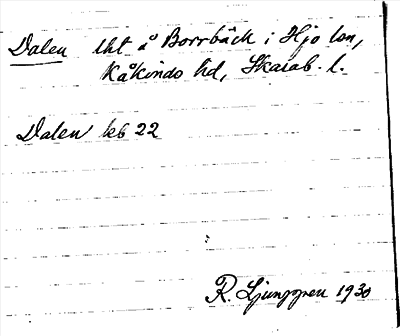 Dalen lht å Borrbäck i Hjo lsn,
Kåkinds hd, Skarab. l.
Dalen kb 22
R. Ljunggren 1930